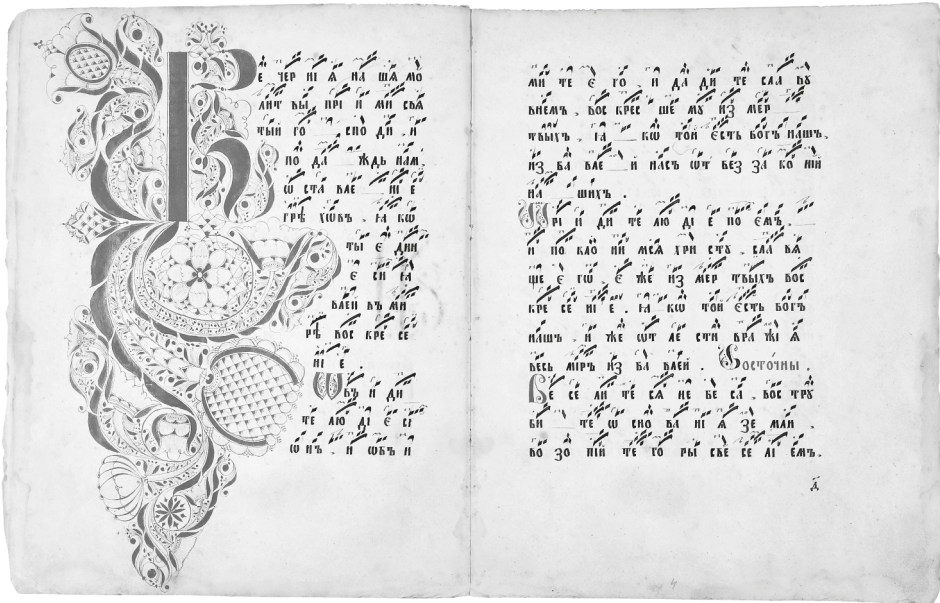 В
Е ЧЕР НІ Я НА ША МО
ЛИТ ВЫ, ПРІ И МИ СВЯ
ТЫИ ГО СПО ДИ. И
ПО ДА ЖДЬ НАМ.
Ѡ СТА ВЛЕ НІ Е
ГРѢ ХѠВЪ. ꙖА КѠ
ТЫ Е ДИН
Е СИ ꙖА
ВЛЕИ ВЪ МИ
РѢ ВОС КРЕ СЕ
НІ Е
Ѡ БЪ И ДИ
ТЕ ЛЮ ДІ Е СІ
Ѡ НЪ. И ѠБЪ И
МИ ТЕ Е ГО. И ДА ДИ ТЕ СЛА ВУ
ВНЕМЪ. ВОС КРЕС ШЕ МУ ИЗ МЕР
ТВЫХЪ. ꙖА КѠ ТОЙ ЕСТЬ БОГЪ НАШЪ.
ИЗ БА ВЛЕ Й НАСЪ ѠТ БЕЗ ЗА КО НІИ
НА ШИХЪ
ПРІ И ДИ ТЕ ЛЮ ДІ Е ПО ЕМЪ.
И ПО КЛО НИ МСЯ ХРИ СТУ. СЛА ВЯ
ЩЕ Е ГѠ. Е ЖЕ ИЗ МЕР ТВЫХЪ ВОС
КРЕ СЕ НІ Е. ꙖА КѠ ТОЙ ЕСТЬ БОГЪ
НАШЪ. И ЖЕ ѠТ ЛЕ СТИ ВРА ЖІ Я
ВЕСЬ МІРЪ ИЗ БА ВЛЕЙ. ВОСТО́ЧНЫ.
ВЕ СЕ ЛИ ТЕ СЯ НЕ БЕ СА. ВОС ТРУ
БИ ТЕ Ѡ СНО ВА НІ Я ЗЕ МЛИ.
ВО ЗО ПІЙ ТЕ ГО РЫ СВЕ СЕ ЛІ ЕМЪ.
Д҃